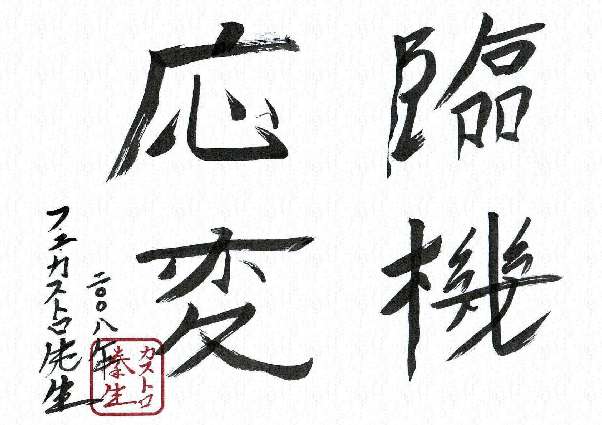 臨機
応変
二〇〇八年
フェカストロ先生
カストロ